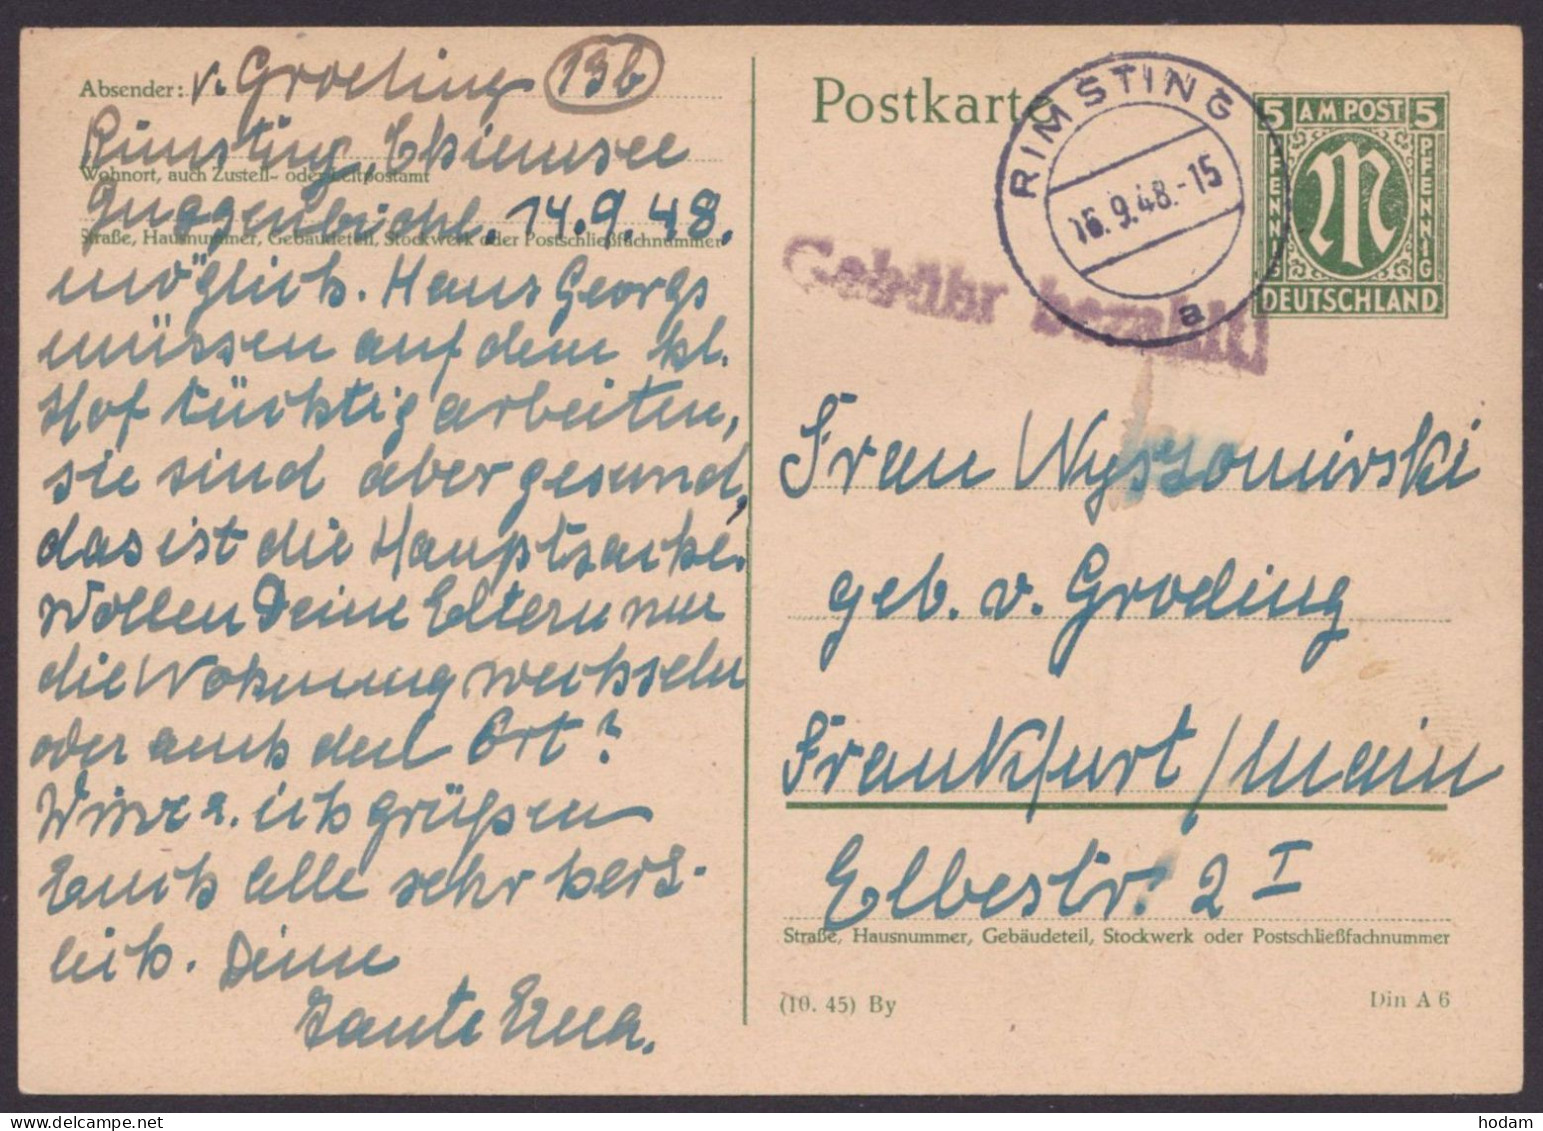 Absender: v. Groeling 13b
Rimsting, Chiemsee
Wohnort, auch Zustell- oder Leitpostamt
Guggenbichl. 14.9.48.
Straße, Hausnummer, Gebäudeteil, Stockwerk oder Postschließfachnummer
möglich. Hans Georgs
müssen auf dem kl.
Hof tüchtig arbeiten,
sie sind aber gesund,
das ist die Hauptsache.
Wollen Deine Eltern nur
die Wohnung wechseln
oder auch den Ort?
u. ich grüßen
Euch alle sehr herz-
lich. Deine
Tante Erna.
Postkarte
RIMSTING
16.9.48.-15
a
5 AM POST 5
PFENNIG
PFENNIG
M
DEUTSCHLAND
Gebühr bezahlt!
Frau Wyssomirski
geb. v. Groeling
Frankfurt/Main
Elbestr. 2 I
Straße, Hausnummer, Gebäudeteil, Stockwerk oder Postschließfachnummer
(10. 45) By
Din A 6
hodam